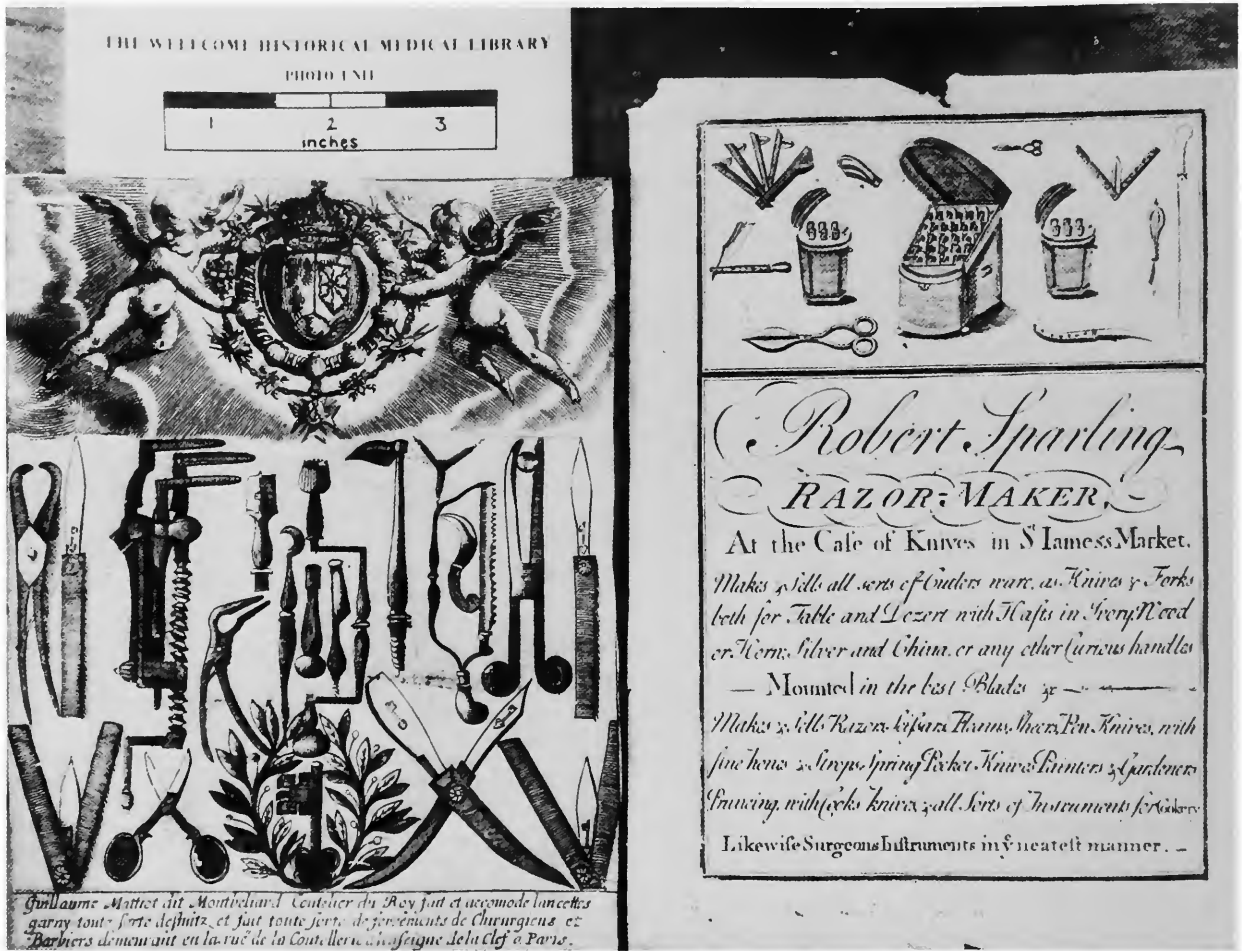 THE WELLCOME HISTORICAL MEDICAL LIBRARY
PHOTO UNIT
1 2 3
inches
Guillaume Mattiot dit Montbeliard Coutelier du Roy fait et accomode lancettes
garny toute sorte et fait toute sorte de de Chirurgiens et
Barbiers demeurant en la ruë de la Coutellerie a la Clef a Paris.
Robert Sparling
RAZOR-MAKER,
At the Case of Knives in St Iamess Market.
Makes & Sells all sorts of Cutlers ware, as Knives & Forks
both for Table and Dezert with Hafts in Ivory, Wood
or Horn, Silver and China, or any other Curious handles
— Mounted in the best Blades &c —
Makes & Sells Razors, Scissars, Fleams, Sheers, Pen Knives, with
fine hones & Strops, Spring Pocket Knives, Painters & Gardeners
Pruneing, with Cooks knives, & all Sorts of Instruments for Cookery
Likewise Surgeons Instruments in ye neatest manner. —